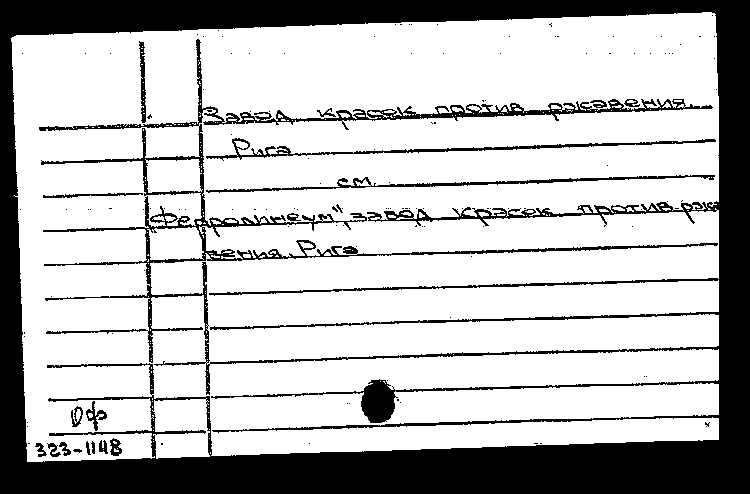 Завод красок против ржавения.
Рига
см.
"Ферролинеум", завод красок против ржа
вения. Рига
Оф
323-1148